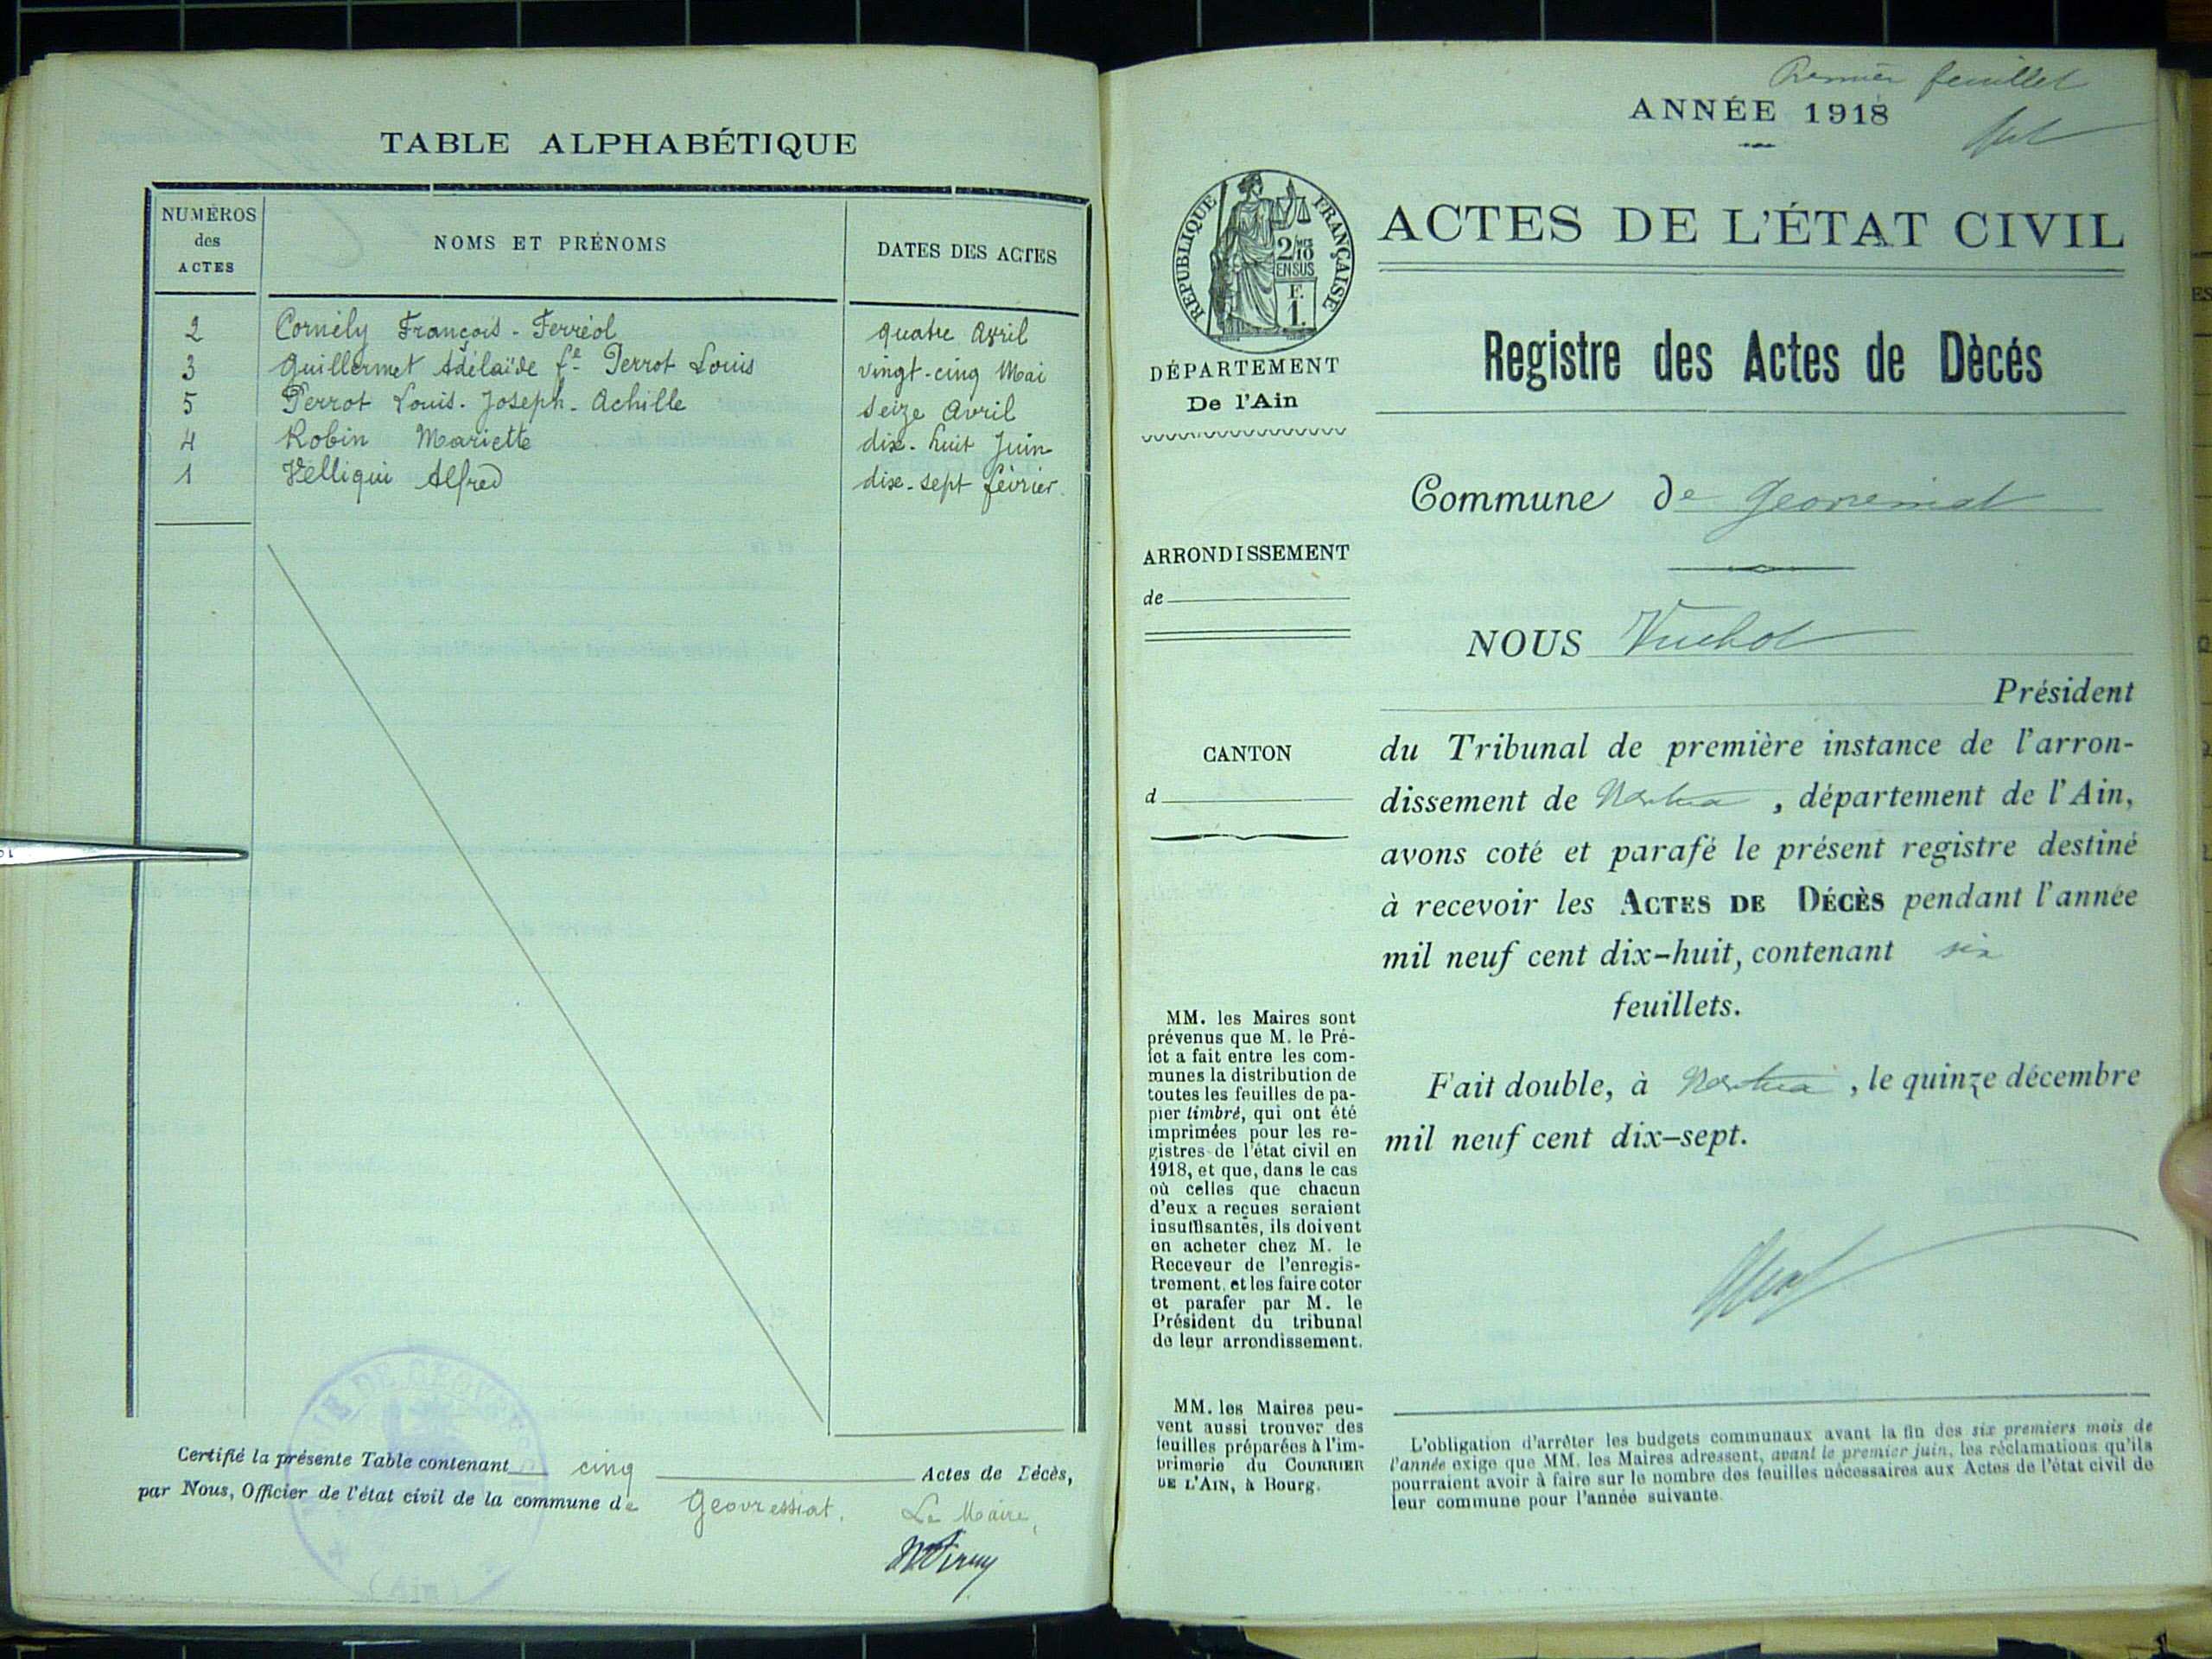 TABLE ALPHABÉTIQUE
NUMÉROS
des
ACTES
NOMS ET PRÉNOMS
DATES DES ACTES
2 Cornély François - Ferréol quatre Avril
3 Guillermet Adélaïde fe Perrot Louis vingt-cinq Mai
5 Perrot Louis - Joseph - Achille seize Avril
4 Robin Mariette dix-huit Juin
1 Velliqui Alfred dix-sept février
Certifié la présente Table contenant cinq Actes de Décès,
par Nous, Officier de l'état civil de la commune de Geovressiat. Le Maire,
(Ain)
Premier feuillet
ANNÉE 1918
RÉPUBLIQUE FRANÇAISE
2/10
EN SUS
F.
1.
ACTES DE L'ÉTAT CIVIL
DÉPARTEMENT
De l'Ain
Registre des Actes de Dècés
Commune de
ARRONDISSEMENT
de
NOUS
Président
CANTON
d
du Tribunal de première instance de l'arron-
dissement de Nantua, département de l'Ain,
avons coté et parafé le présent registre destiné
à recevoir les ACTES DE DÉCÈS pendant l'année
mil neuf cent dix-huit, contenant six
feuillets.
Fait double, à Nantua, le quinze décembre
mil neuf cent dix-sept.
MM. les Maires sont
prévenus que M. le Pré-
fet a fait entre les com-
munes la distribution de
toutes les feuilles de pa-
pier timbré, qui ont été
imprimées pour les re-
gistres de l'état civil en
1918, et que, dans le cas
où celles que chacun
d'eux a reçues seraient
insuffisantes, ils doivent
en acheter chez M. le
Receveur de l'enregis-
trement, et les faire coter
et parafer par M. le
Président du tribunal
de leur arrondissement.
MM. les Maires peu-
vent aussi trouver des
feuilles préparées à l'im-
primerie du COURRIER
DE L'AIN, à Bourg.
L'obligation d'arrêter les budgets communaux avant la fin des six premiers mois de
l'année exige que MM. les Maires adressent, avant le premier juin, les réclamations qu'ils
pourraient avoir à faire sur le nombre des feuilles nécessaires aux Actes de l'état civil de
leur commune pour l'année suivante.